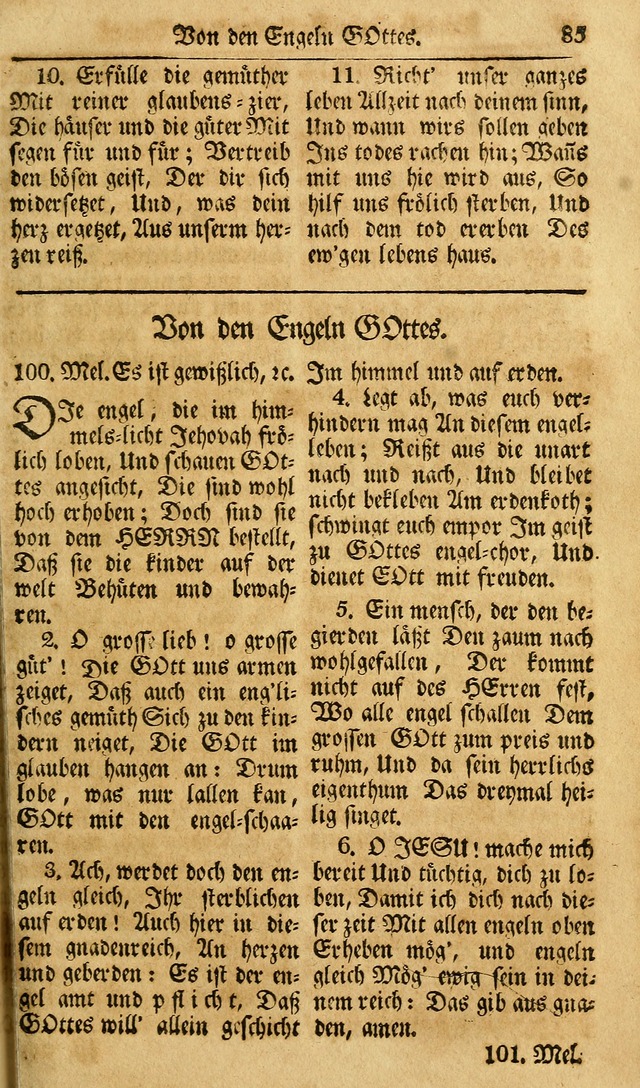 Von den Engeln GOttes. 85
10. Erfülle die gemüther
Mit reiner glaubens-zier,
Die häuser und die güter Mit
segen für und für; Vertreib
den bösen geist, Der dir sich
widersetzet, Und, was dein
herz ergetzet, Aus unserm her-
zen reiß.
11. Richt' unser ganzes
leben Allzeit nach deinem sinn,
Und wann wirs sollen geben
Ins todes rachen hin; Wañs
mit uns hie wird aus, So
hilf uns frölich sterben, Und
nach dem tod ererben Des
ew'gen lebens haus.
Von den Engeln GOttes.
100. Mel. Es ist gewißlich, ꝛc.
DIe engel, die im him-
mels-licht Jehovah frö-
lich loben, Und schauen GOt-
tes angesicht, Die sind wohl
hoch erhoben; Doch sind sie
von dem HERRN bestellt,
Daß sie die kinder auf der
welt Behüten und bewah-
ren.
2. O grosse lieb! o grosse
güt'! Die GOtt uns armen
zeiget, Daß auch ein eng'li-
sches gemüth Sich zu den kin-
dern neiget, Die GOtt im
glauben hangen an: Drum
lobe, was nur lallen kan,
GOtt mit den engel-schaa-
ren.
3. Ach, werdet doch den en-
geln gleich, Ihr sterblichen
auf erden! Auch hier in die-
sem gnadenreich, An herzen
und geberden: Es ist der en-
gel amt und pflicht, Daß
GOttes will' allein geschicht
Im himmel und auf erden.
4. Legt ab, was euch ver-
hindern mag An diesem engel-
leben; Reißt aus die unart
nach und nach, Und bleibet
nicht bekleben Am erdenkoth;
schwingt euch empor Im geist
zu GOttes engel-chor, Und
dienet GOtt mit freuden.
5. Ein mensch, der den be-
gierden läßt Den zaum nach
wohlgefallen, Der kommt
nicht auf des HErren fest,
Wo alle engel schallen Dem
grossen GOtt zum preis und
ruhm, Und da sein herrlichs
eigenthum Das dreymal hei-
lig singet.
6. O JESU! mache mich
bereit Und tüchtig, dich zu lo-
ben, Damit ich dich nach die-
ser zeit Mit allen engeln oben
Erheben mög', und engeln
gleich Mög' ewig sein in dei-
nem reich: Das gib aus gna-
den, amen.
101. Mel.